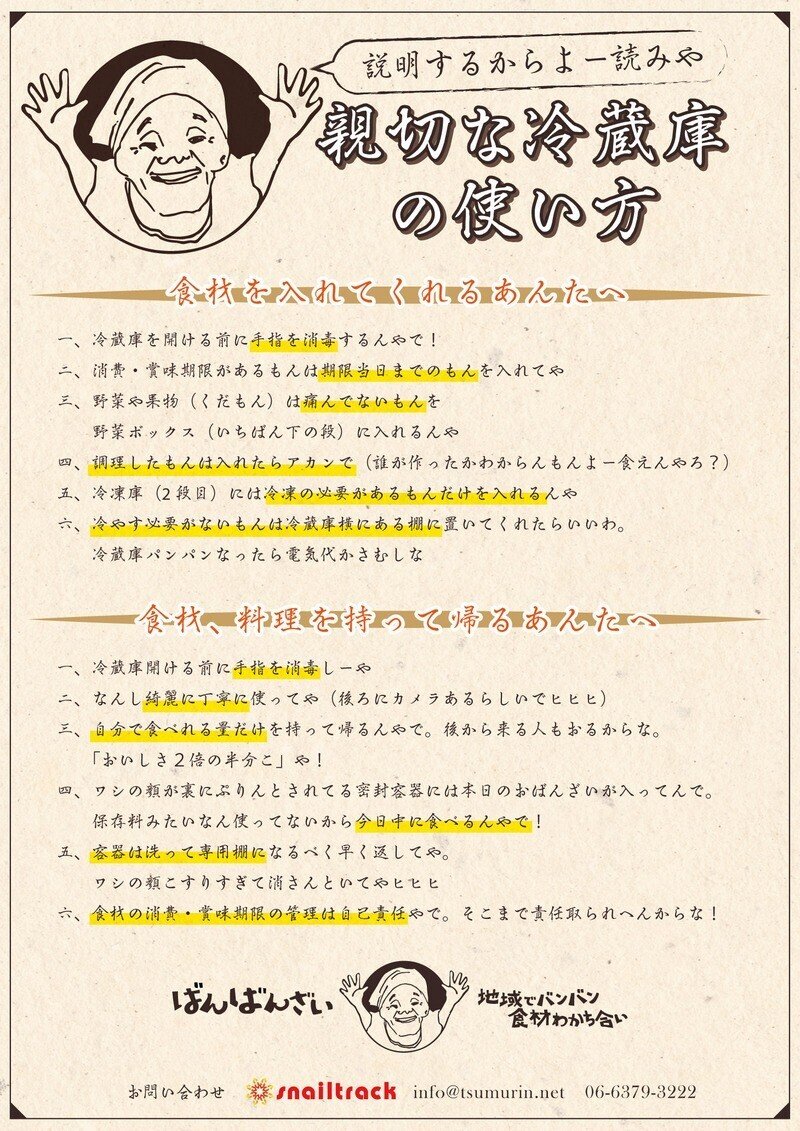 説明するからよー読みや
親切な冷蔵庫
の使い方
食材を入れてくれるあんたへ
一、冷蔵庫を開ける前に手指を消毒するんやで！
二、消費・賞味期限があるもんは期限当日までのもんを入れてや
三、野菜や果物（くだもん）は痛んでないもんを
野菜ボックス（いちばん下の段）に入れるんや
四、調理したもんは入れたらアカンで（誰が作ったかわからんもんよー食えんやろ？）
五、冷凍庫（2段目）には冷凍の必要があるもんだけを入れるんや
六、冷やす必要がないもんは冷蔵庫横にある棚に置いてくれたらいいわ。
冷蔵庫パンパンなったら電気代かさむしな
食材、料理を持って帰るあんたへ
一、冷蔵庫開ける前に手指を消毒しーや
二、なんし綺麗に丁寧に使ってや（後ろにカメラあるらしいでヒヒヒ）
三、自分で食べれる量だけを持って帰るんやで。後から来る人もおるからな。
「おいしさ2倍の半分こ」や！
四、ワシの顔が裏にぷりんとされてる密封容器には本日のおばんざいが入ってんで。
保存料みたいなん使ってないから今日中に食べるんやで！
五、容器は洗って専用棚になるべく早く返してや。
ワシの顔こすりすぎて消さんといてやヒヒヒ
六、食材の消費・賞味期限の管理は自己責任やで。そこまで責任取られへんからな！
ばんばんざい
地域でバンバン
食材わかち合い
お問い合わせ snailtrack info@tsumurin.net 06-6379-3222